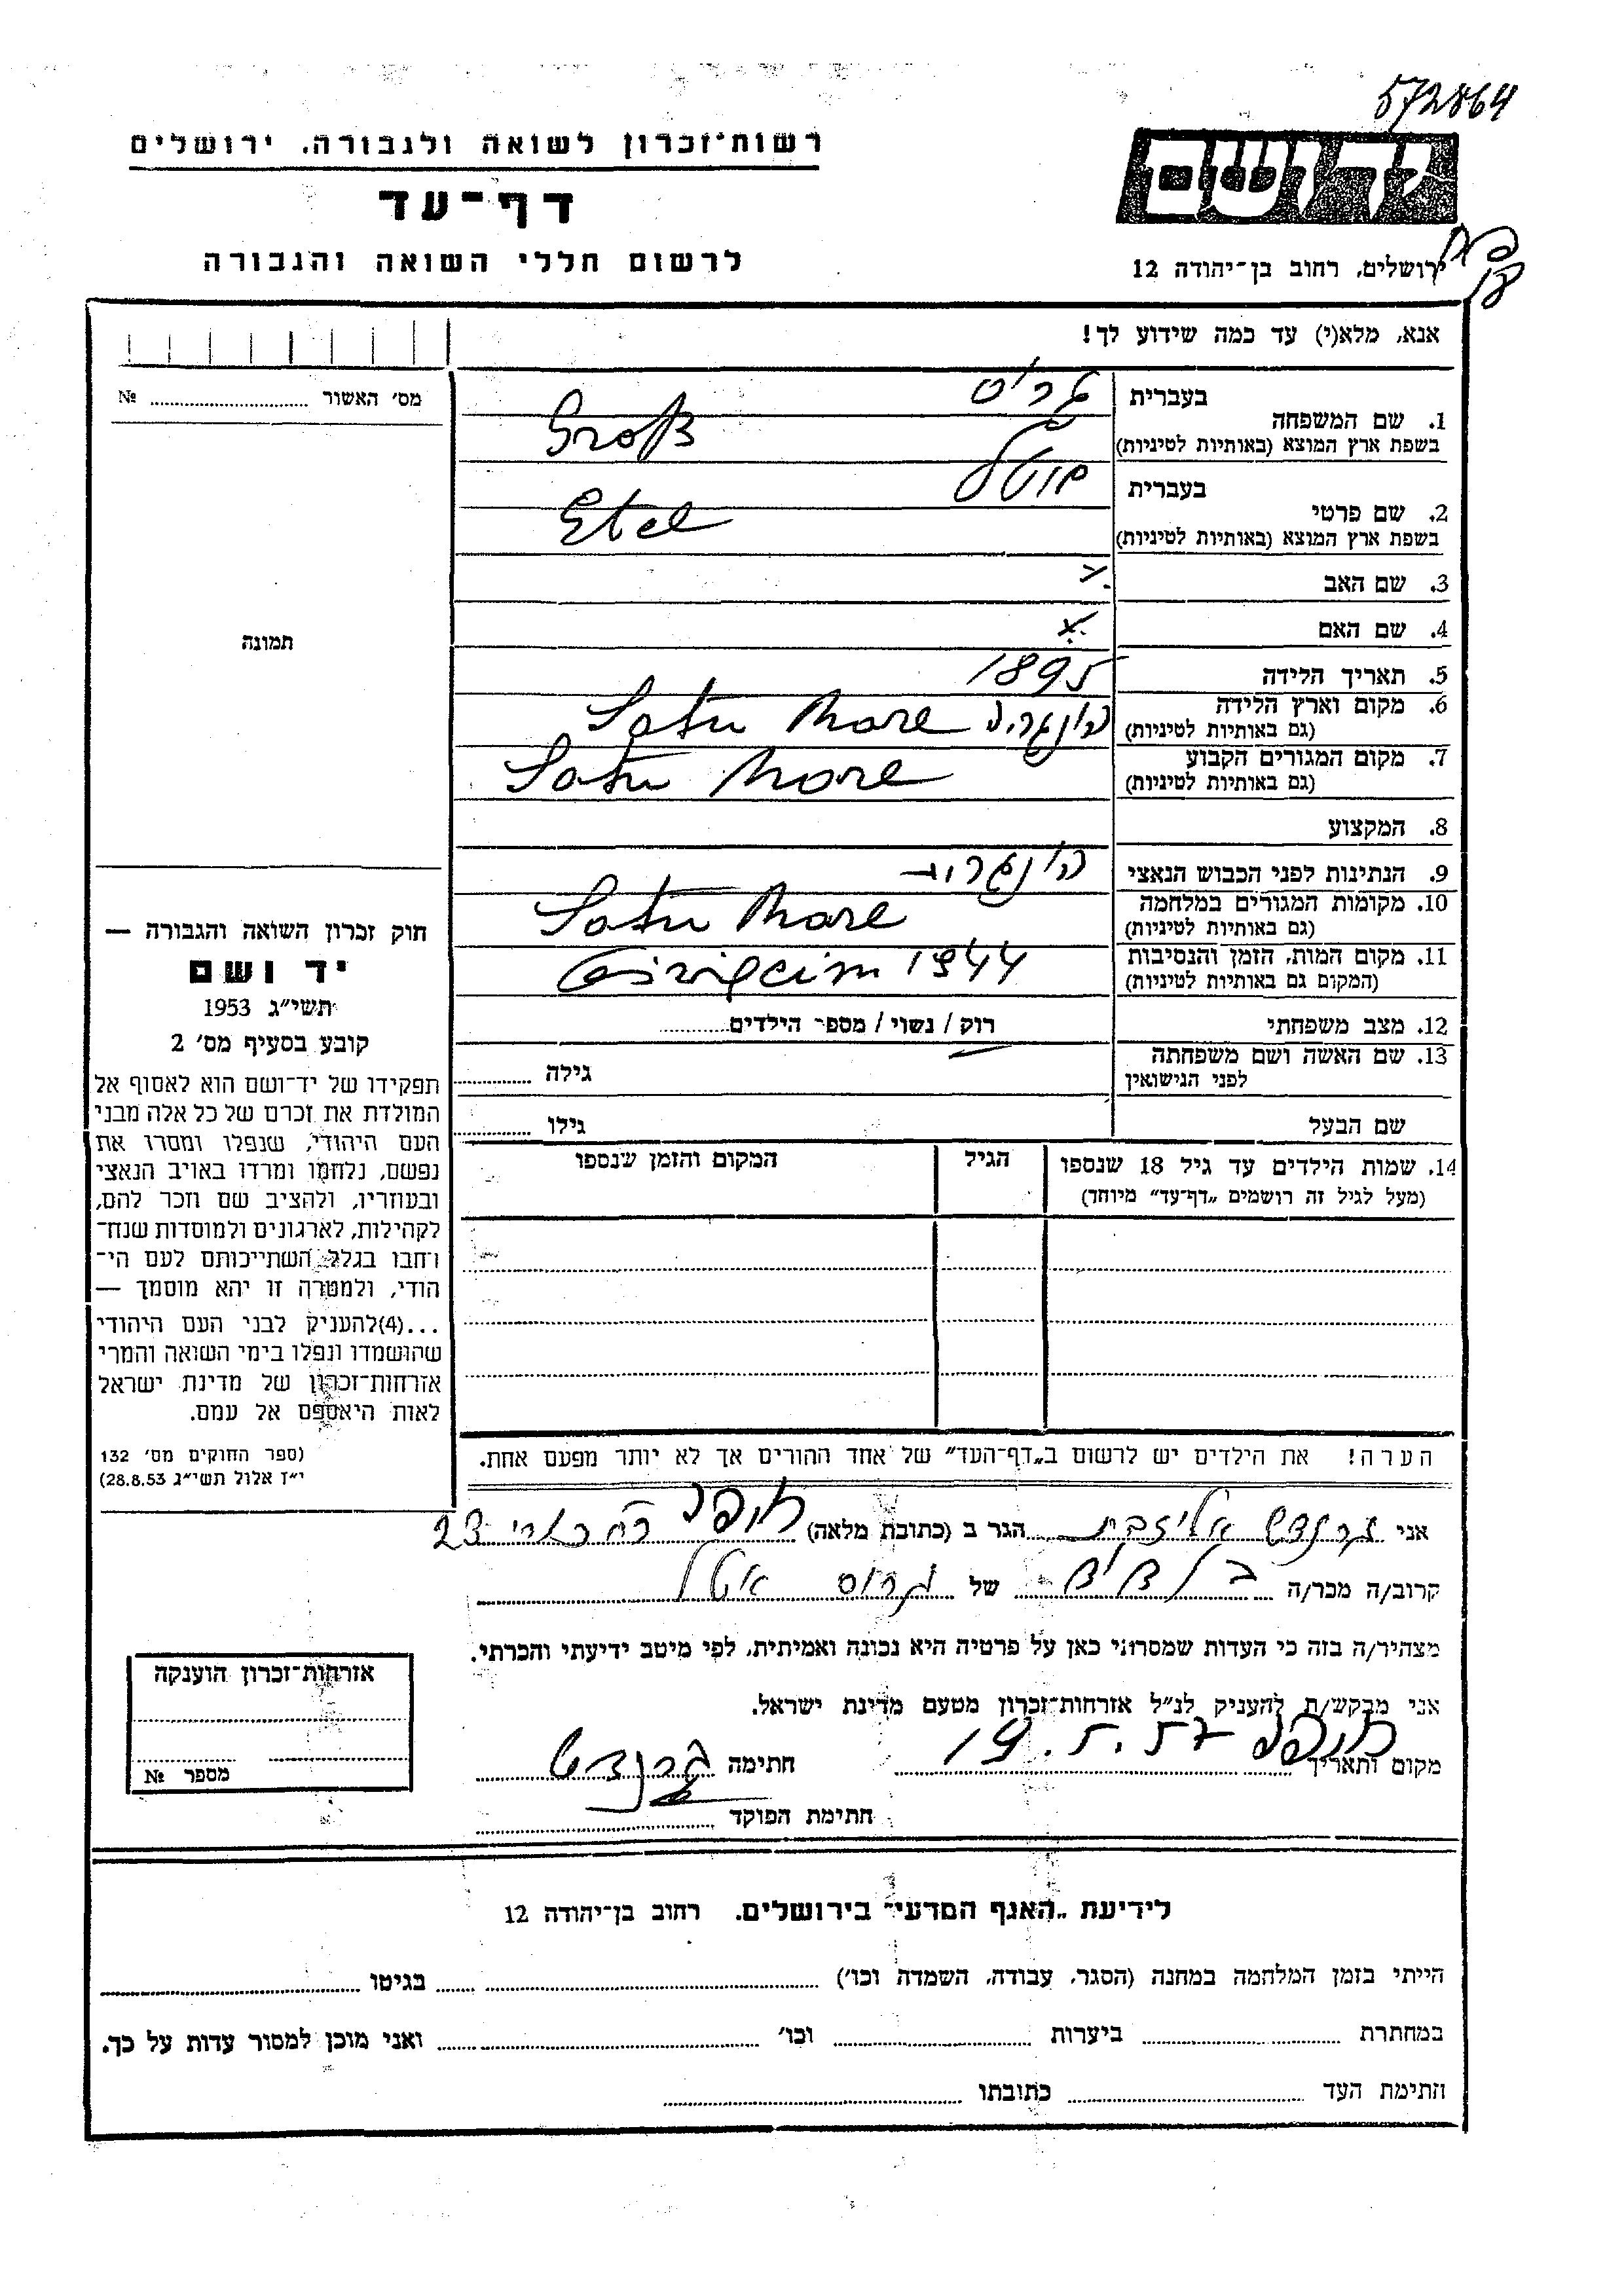 572864
רשות־זכרון לשואה ולגבורה. ירושלים
ידושם
דף־עד
לרשום חללי השואה והגבורה
ירושלים, רחוב בן־יהודה 12
אנא, מלא(י) עד כמה שידוע לך!
מס׳ האשור № 
1. שם המשפחה
בעברית גרוס
בשפת ארץ המוצא (באותיות לטיניות) Groß
2. שם פרטי
בעברית
בשפת ארץ המוצא (באותיות לטיניות) Etel
3. שם האב
4. שם האם
5. תאריך הלידה 1895
6. מקום וארץ הלידה
(גם באותיות לטיניות) הונגריה Satu Mare
7. מקום המגורים הקבוע
(גם באותיות לטיניות) Satu Mare
8. המקצוע
9. הנתינות לפני הכבוש הנאצי
10. מקומות המגורים במלחמה
(גם באותיות לטיניות) Satu Mare
11. מקום המות, הזמן והנסיבות
(המקום גם באותיות לטיניות) 1944
12. מצב משפחתי רוק / נשוי / מספר הילדים
13. שם האשה ושם משפחתה
לפני הנישואין גילה
שם הבעל גילו
14. שמות הילדים עד גיל 18 שנספו הגיל המקום והזמן שנספו
(מעל לגיל זה רושמים „דף־עד״ מיוחד)
תמונה
חוק זכרון השואה והגבורה —
יד ושם
תשי״ג 1953
קובע בסעיף מס׳ 2
תפקידו של יד־ושם הוא לאסוף אל
המולדת את זכרם של כל אלה מבני
העם היהודי, שנפלו ומסרו את
נפשם, נלחמו ומרדו באויב הנאצי
ובעוזריו, ולהציב שם וזכר להם,
לקהילות, לארגונים ולמוסדות שנח־
רחבו בגלל השתייכותם לעם הי־
הודי, ולמטרה זו יהא מוסמך —
...(4)להעניק לבני העם היהודי
שהושמדו ונפלו בימי השואה והמרי
אזרחות־זכרון של מדינת ישראל
לאות היאספם אל עמם.
(ספר החוקים מס׳ 132
י״ז אלול תשי״ג 28.8.53)
הערה! את הילדים יש לרשום ב„דף־העד״ של אחד ההורים אך לא יותר מפעם אחת.
אני אליזבת הגר ב (כתובת מלאה) חיפה 23
קרוב/ה מכר/ה של גרוס אטל
מצהיר/ה בזה כי העדות שמסרתי כאן על פרטיה היא נכונה ואמיתית, לפי מיטב ידיעתי והכרתי.
אני מבקש/ת להעניק לנ״ל אזרחות־זכרון מטעם מדינת ישראל.
מקום ותאריך חיפה 19.5.57 חתימה
חתימת הפוקד
אזרחות־זכרון הוענקה
מספר №
לידיעת „האגף המדעי״ בירושלים. רחוב בן־יהודה 12
הייתי בזמן המלחמה במחנה (הסגר, עבודה, השמדה וכו׳) בגיטו
במחתרת ביערות וכו׳ ואני מוכן למסור עדות על כך.
חתימת העד כתובתו